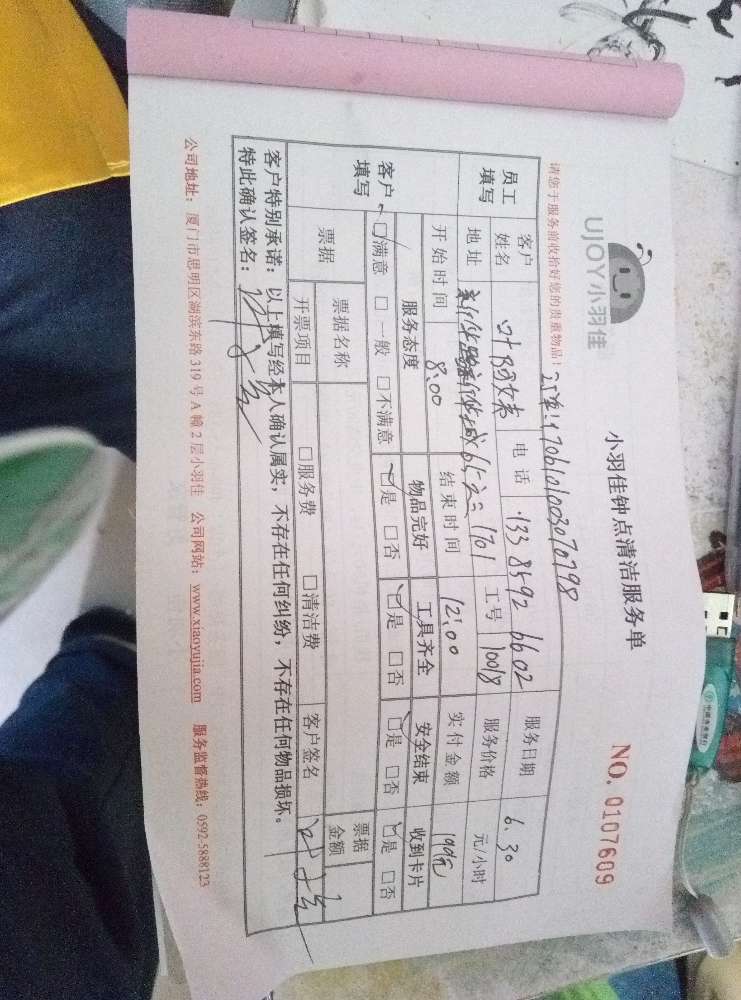 UJOY小羽佳
小羽佳钟点清洁服务单
NO. 0107609
请您于服务前收拾好您的贵重物品!
员工填写
客户姓名
叶阿姨
电话
133 8592 6602
服务日期
6.30
地址
1701
工号
10018
服务价格
元/小时
开始时间
8:00
结束时间
12:00
实付金额
190元
客户填写
服务态度 物品完好 工具齐全 安全结束 收到卡片
☑满意 □一般 □不满意 ☑是 □否 ☑是 □否 ☑是 □否 ☑是 □否
票据
票据名称
票据金额
开票项目
□服务费 □清洁费
客户签名
客户特别承诺:以上填写经本人确认属实,不存在任何纠纷,不存在任何物品损坏。
特此确认签名:
公司地址:厦门市思明区湖滨东路 319 号 A 幢 2 层小羽佳 公司网站:www.xiaoyujia.com 服务监督热线:0592-5888123